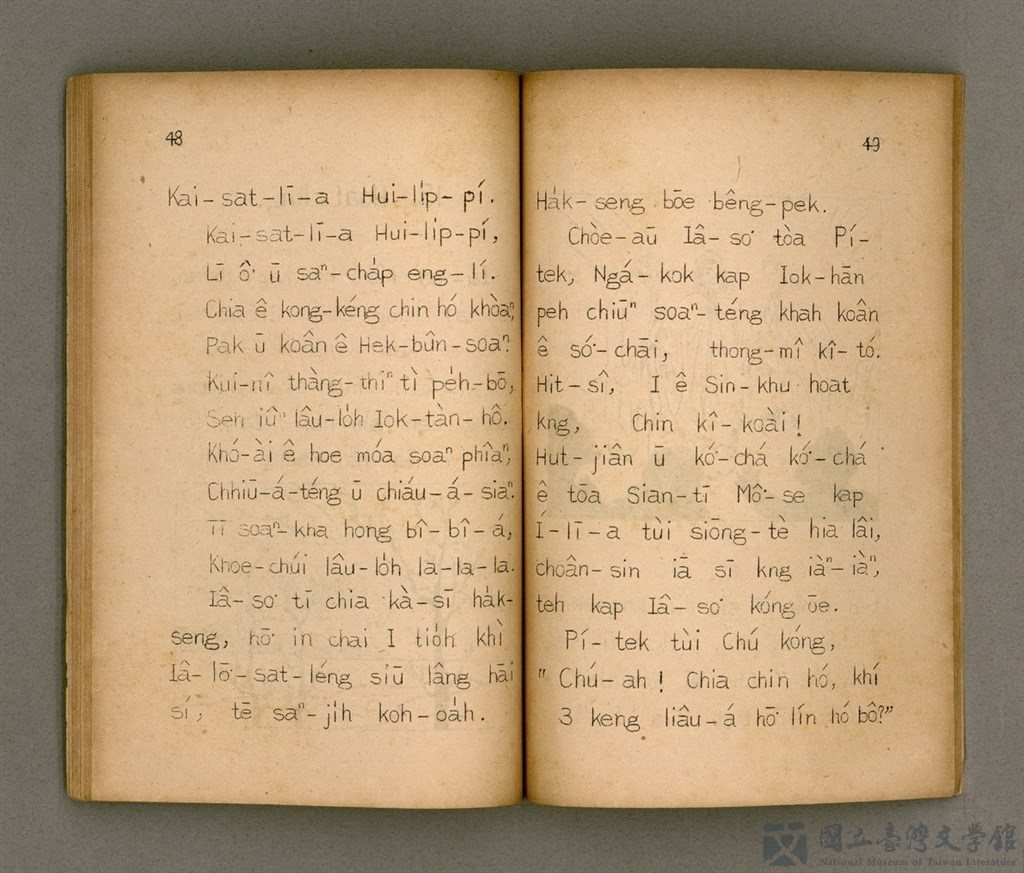 48
Kai-sat-lī-a Hui-li̍p-pí.
Kai-sat-lī-a Hui-li̍p-pí,
Lī ô͘ ū saⁿ-cha̍p eng-lí.
Chia ê kong-kéng chin hó khòaⁿ,
Pak ū koân ê Hek-bûn-soaⁿ.
Kui-nî thàng-thiⁿ tì pe̍h-bō,
Seh iûⁿ lâu-lo̍h Iok-tàn-hô.
Khó-ài ê hoe móa soaⁿ phîaⁿ,
Chhiū-á-téng ū chiáu-á-siaⁿ.
Tī soaⁿ-kha hong bî-bî-á,
Khoe-chúi lâu-lo̍h la-la-la.
Iâ-so͘ tī chia kà-sī ha̍k-
seng, hō͘ in chai I tio̍h khì
Iâ-lō͘-sat-léng siū lâng hāi
sí, tē saⁿ-ji̍h koh-oa̍h.
49
Ha̍k-seng bōe bêng-pek.
Chòe-aū Iâ-so͘ tòa Pí-
tek, Ngá-kok kap Iok-hān
peh chiūⁿ soaⁿ-téng khah koân
ê só͘-chāi, thong-mî kî-tó.
Hit-sî, I ê Sin-khu hoat
kng, Chin kî-koài!
Hut-jiân ū kó͘-chá kó͘-chá
ê tōa Sian-ti Mô͘-se kap
Í-lī-a tùi siōng-tè hia lâi,
choân-sin iā sī kng iàⁿ-iàⁿ,
teh kap Iâ-so͘ kóng ōe.
Pí-tek tùi Chú kóng,
"Chú-ah! Chia chin hó, khí
3 keng liâu-á hō͘ lín hó bô?"
國立臺灣文學館
National Museum of Taiwan Literature